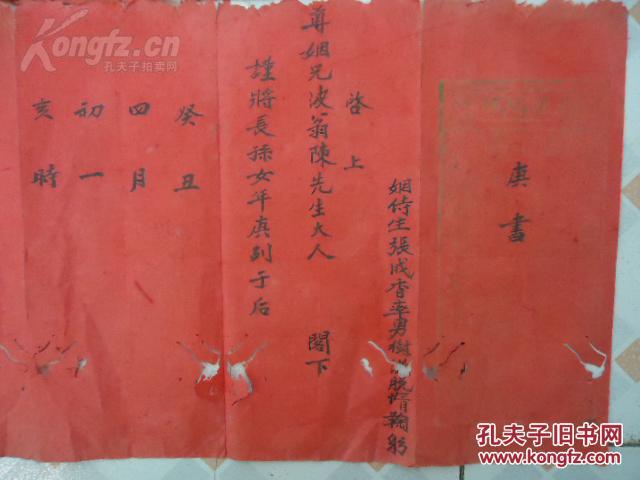 庚書
姻侍生張成杏率男樹 脫 鞠躬
啓上
尊姻兄波翁陳先生大人 閣下
謹將長孫女年庚列于后
癸丑
四月
初一
亥時
Kongfz.com
孔夫子拍卖网
孔夫子旧书网
www.kongfz.com